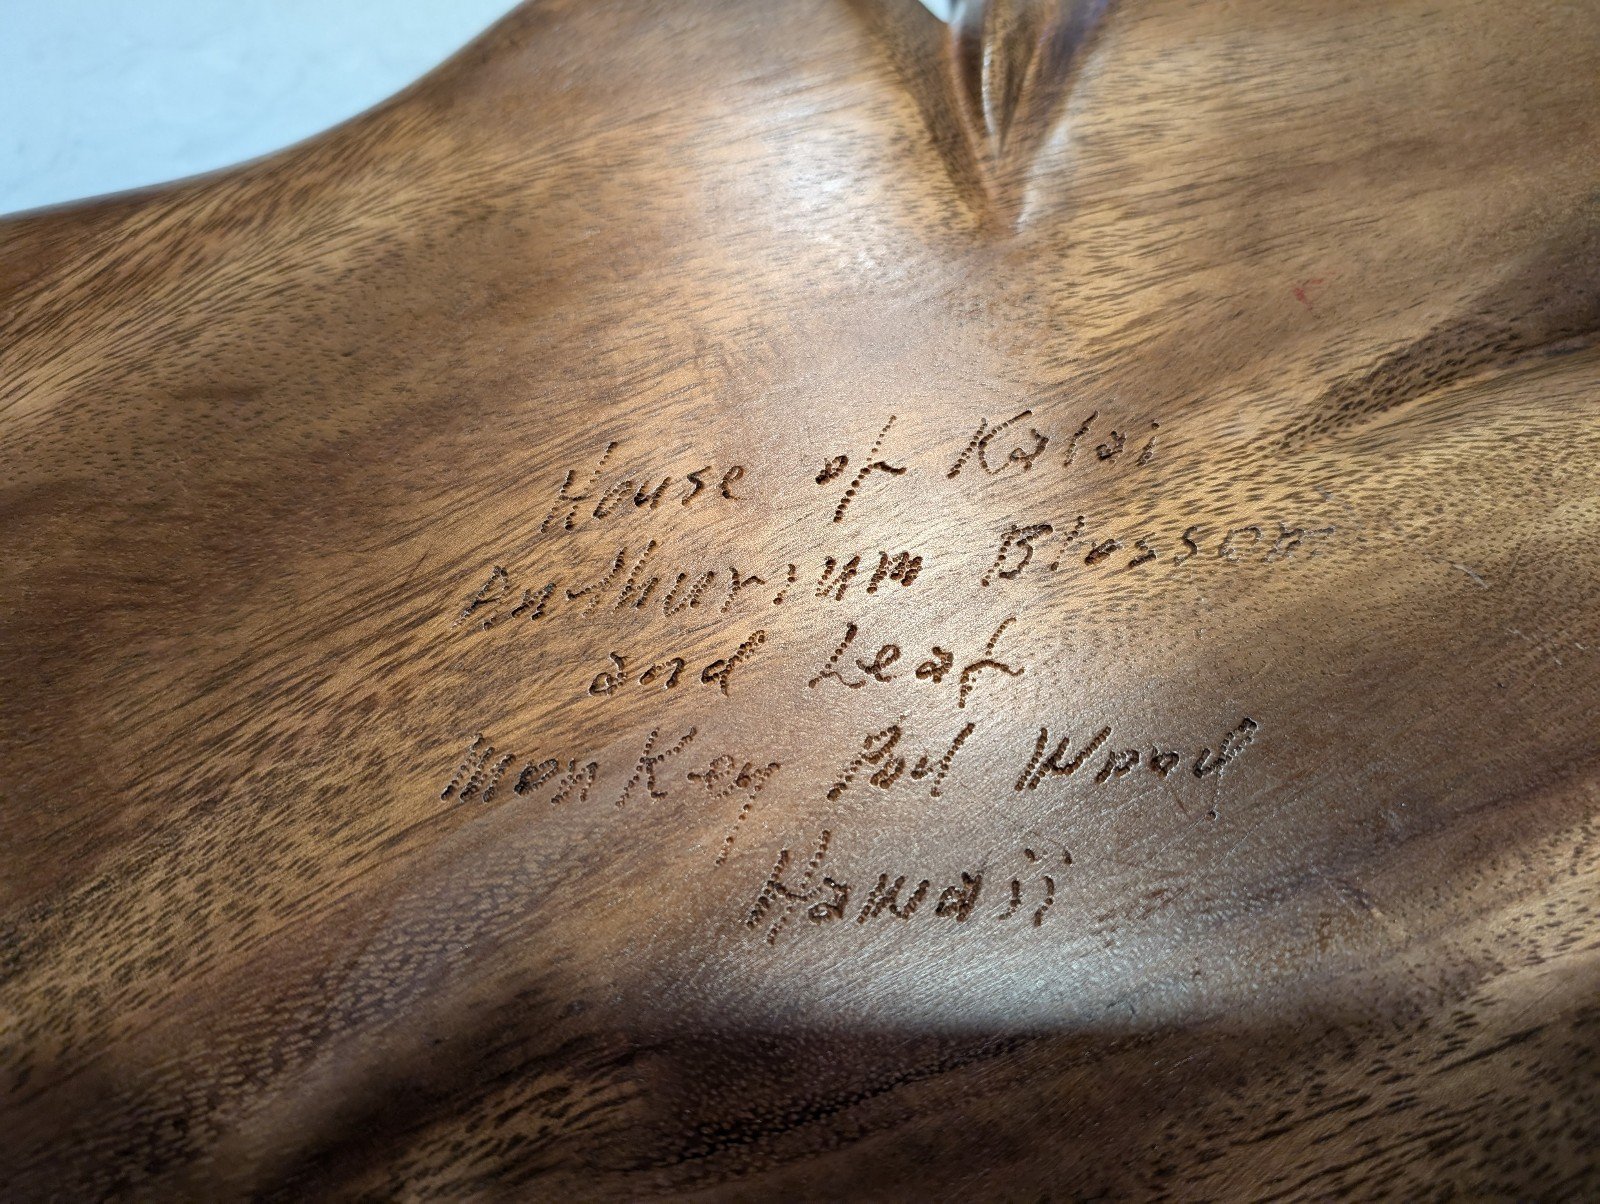 House of Kalai
Anthurium Blossom
and Leaf
Monkey Pod Wood
Hawaii